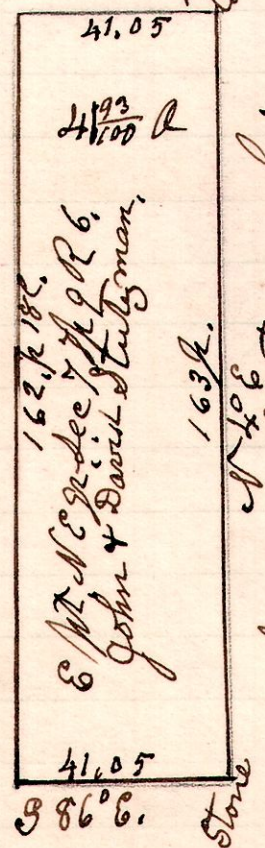 41.05
41 93/100 A
162.p 18l.
E pt N E qr Sec 7 Tp 9 R 6.
John & David Stutzman.
163 p.
N 4° E
41.05
S 86° E.
Stone